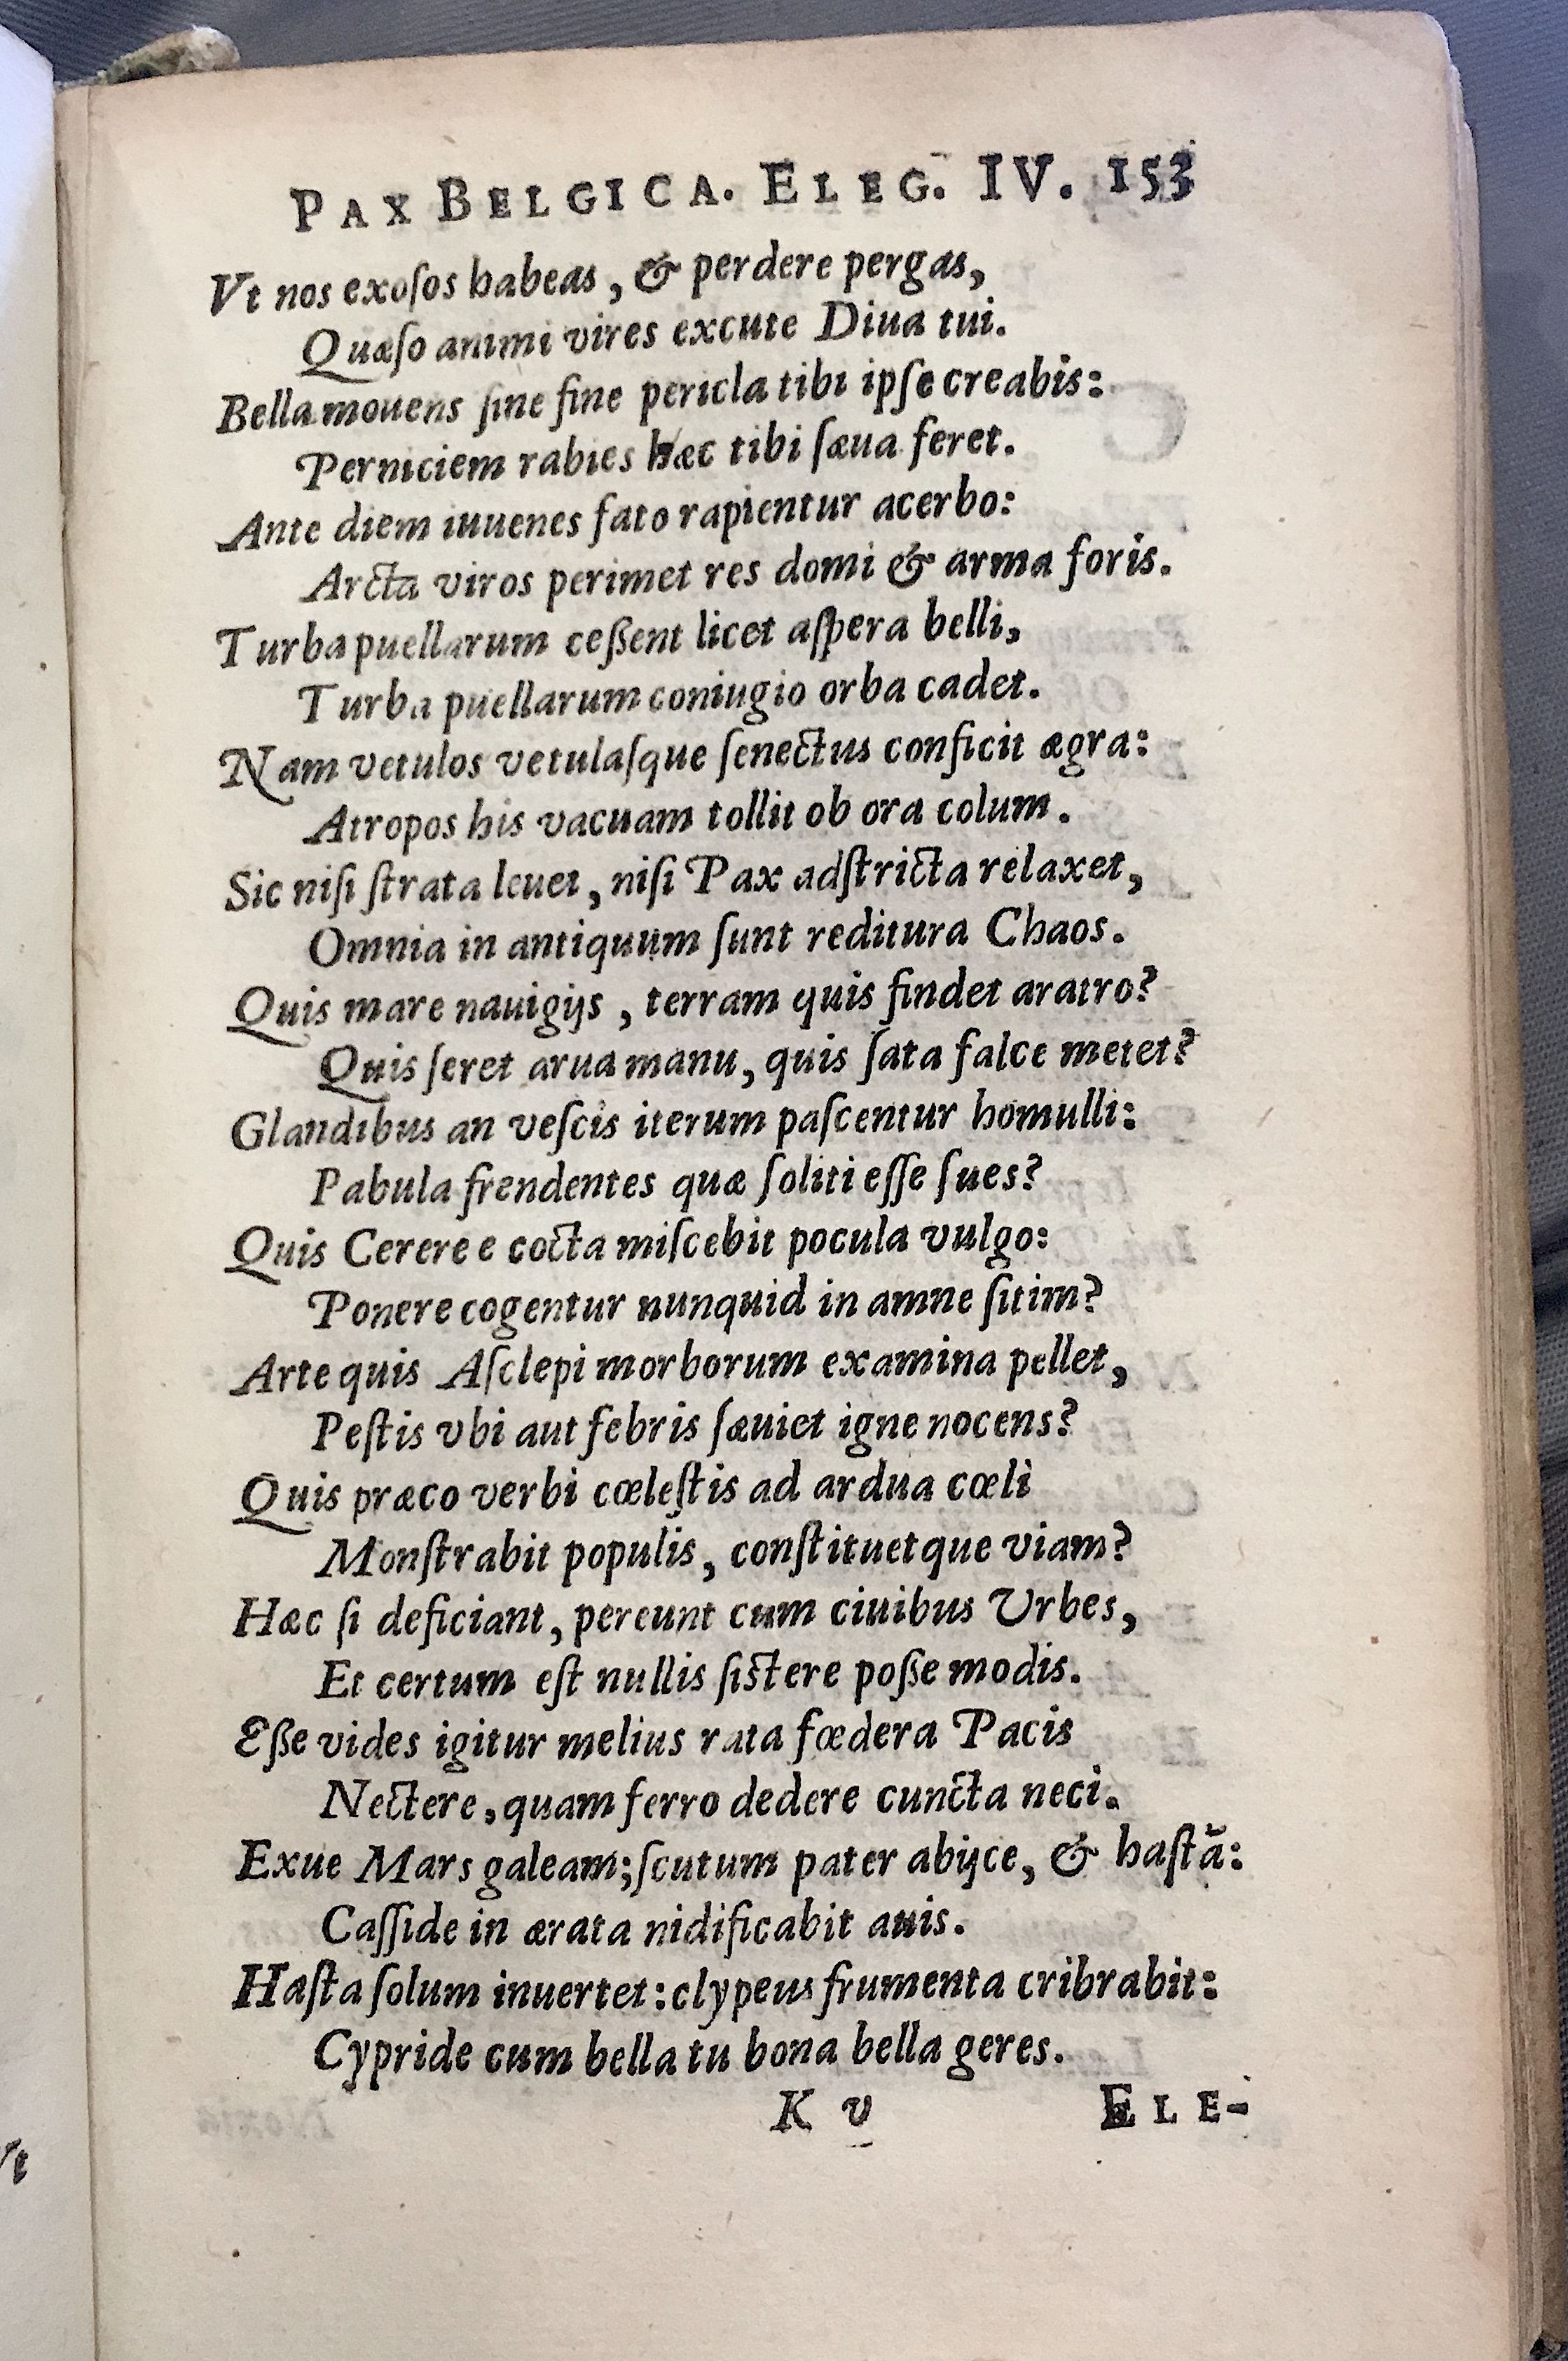 PAX BELGICA. ELEG. IV. 153
Vt nos exoſos habeas, & perdere pergas,
Quæſo animi vires excute Diua tui.
Bella mouens ſine fine pericla tibi ipſe creabis:
Perniciem rabies hæc tibi ſæua feret.
Ante diem iuuenes fato rapientur acerbo:
Arcta viros perimet res domi & arma foris.
Turba puellarum ceßent licet aſpera belli,
Turba puellarum coniugio orba cadet.
Nam vetulos vetulaſque ſenectus conficit ægra:
Atropos his vacuam tollit ob ora colum.
Sic niſi ſtrata leuet, niſi Pax adſtricta relaxet,
Omnia in antiquum ſunt reditura Chaos.
Quis mare nauigijs, terram quis findet aratro?
Quis ſeret arua manu, quis ſata falce metet?
Glandibus an veſcis iterum paſcentur homulli:
Pabula frendentes quæ ſoliti eſſe ſues?
Quis Cerere e cocta miſcebit pocula vulgo:
Ponere cogentur nunquid in amne ſitim?
Arte quis Aſclepi morborum examina pellet,
Peſtis vbi aut febris ſæuiet igne nocens?
Quis præco verbi cœleſtis ad ardua cœli
Monſtrabit populis, conſtituetque viam?
Hæc ſi deficiant, pereunt cum ciuibus Urbes,
Et certum eſt nullis ſistere poße modis.
Eße vides igitur melius rata fœdera Pacis
Nectere, quam ferro dedere cuncta neci.
Exue Mars galeam; ſcutum pater abijce, & haſtã:
Caſſide in ærata nidificabit auis.
Haſta ſolum inuertet: clypeus frumenta cribrabit:
Cypride cum bella tu bona bella geres.
K v ELE-
Vt